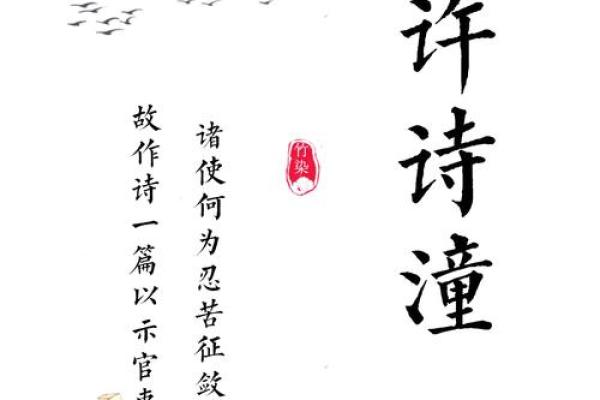 许诗潼
竹染
诸使何为忍苦征敛
故作诗一篇以示官